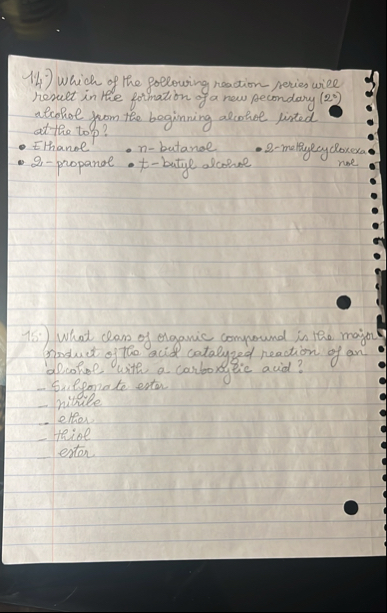 14:) Which of the following reaction series will
result in the formation of a new secondary (2°)
alcohol from the beginning alcohol listed
at the top?
• Ethanol • n-butanol • 2-methylcycloxexa
• 2-propanol • t-butyl alcohol nol
15:) What class of organic compound is the major
product of the acid catalyzed reaction of an
alcohol with a carboxylic acid?
- Sulfonate ester
- nitrile
- ether
- thiol
- ester